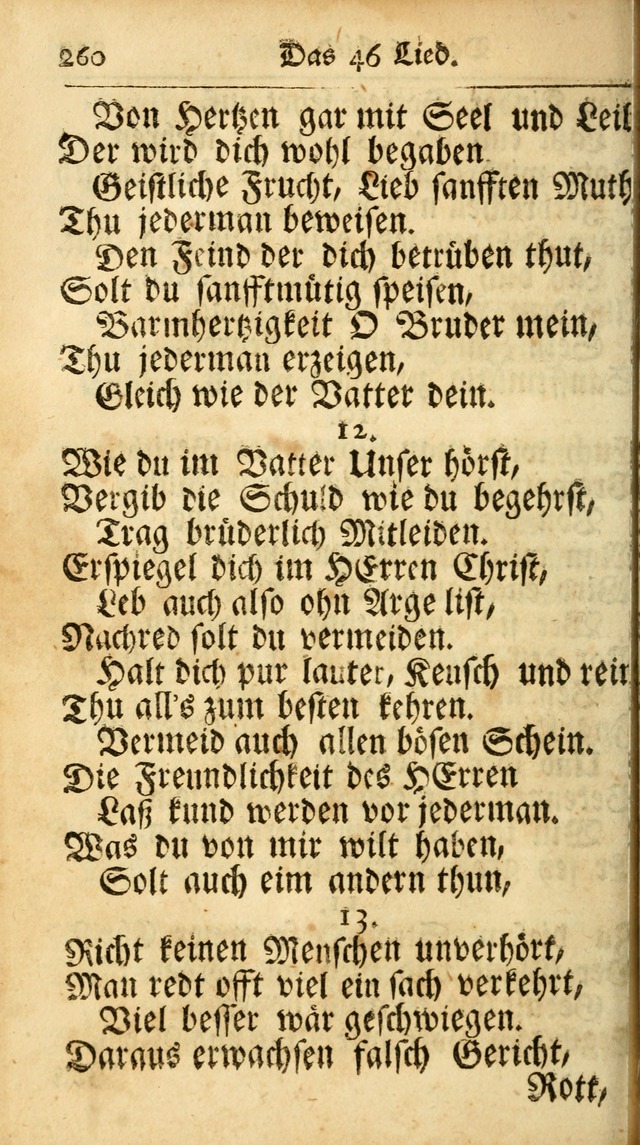 260 Das 46 Lied.
Von Hertzen gar mit Seel und Leil
Der wird dich wohl begaben
Geistliche Frucht, Lieb sanfften Muth
Thu jederman beweisen.
Den Feind der dich betrüben thut,
Solt du sanfftmütig speisen,
Barmhertzigkeit O Bruder mein,
Thu jederman erzeigen,
Gleich wie der Vatter dein.
12.
Wie du im Vatter Unser hörst,
Vergib die Schuld wie du begehrst,
Trag brüderlich Mitleiden.
Erspiegel dich im HErren Christ,
Leb auch also ohn Arge list,
Nachred solt du vermeiden.
Halt dich pur lauter, Keusch und rein
Thu all's zum besten kehren.
Vermeid auch allen bösen Schein.
Die Freundlichkeit des HErren
Laß kund werden vor jederman.
Was du von mir wilt haben,
Solt auch eim andern thun,
13.
Richt keinen Menschen unverhört,
Man redt offt viel ein sach verkehrt,
Viel besser wär geschwiegen.
Daraus erwachsen falsch Gericht,
Rott,